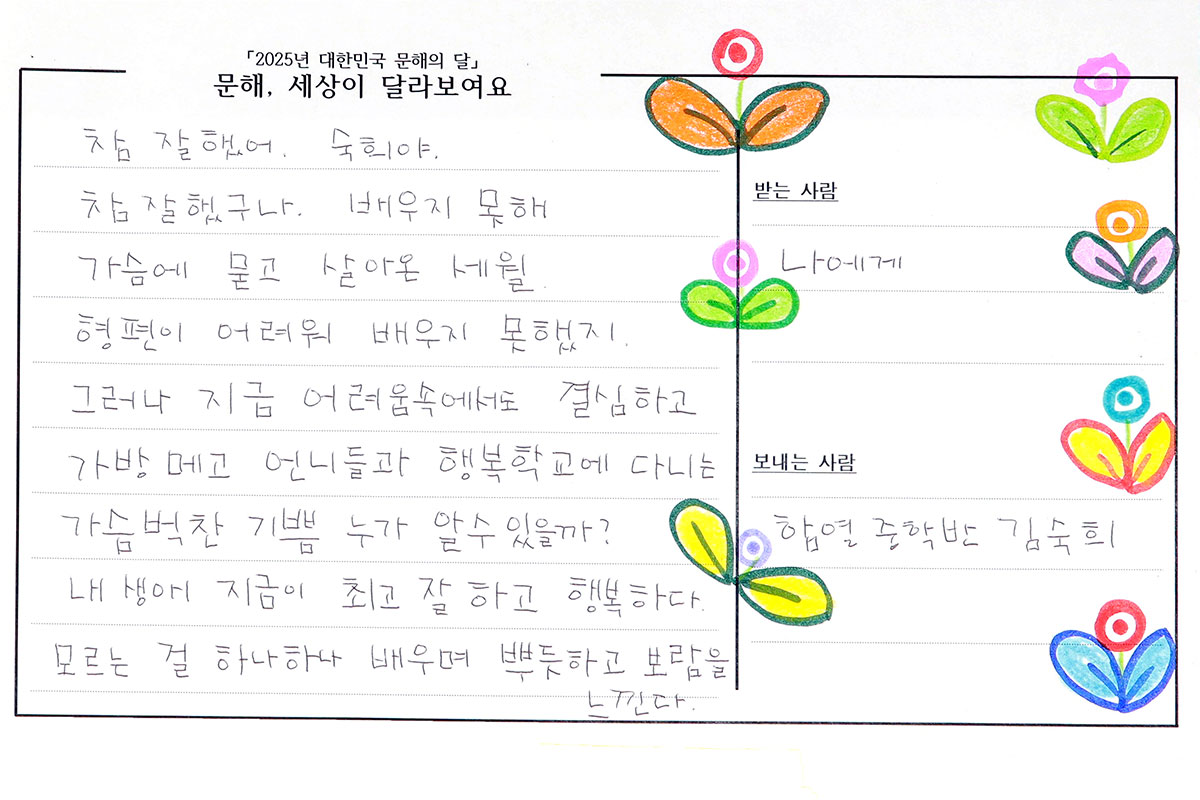 「2025년 대한민국 문해의 달」
문해, 세상이 달라보여요
참 잘했어. 숙희야.
참 잘했구나. 배우지 못해
가슴에 묻고 살아온 세월.
형편이 어려워 배우지 못했지.
그러나 지금 어려움속에서도 결심하고
가방 메고 언니들과 행복학교에 다니는
가슴벅찬 기쁨 누가 알수있을까?
내 생애 지금이 최고 잘 하고 행복하다.
모르는 걸 하나하나 배우며 뿌듯하고 보람을
느낀다.
받는 사람
나에게
보내는 사람
합열 중학반 김숙희